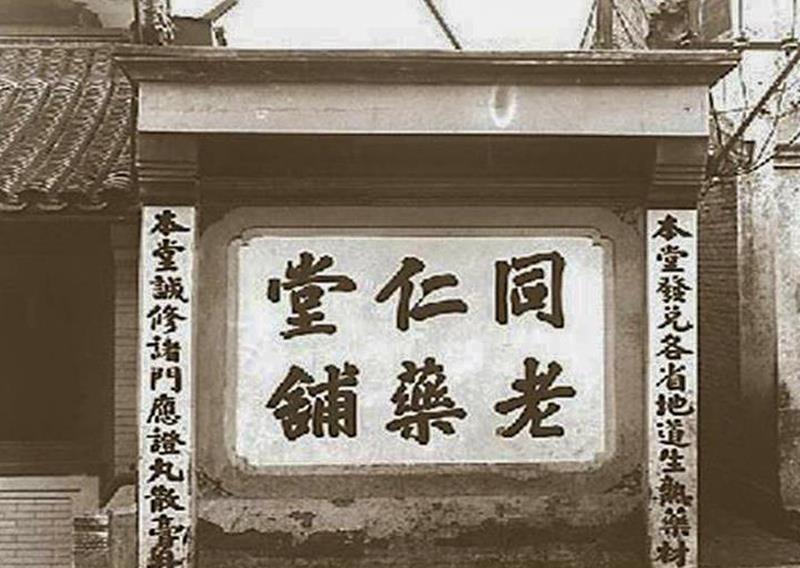 同仁堂
老藥舖
本堂發兌各省地道生熟藥材
本堂誠修諸門應證丸散膏